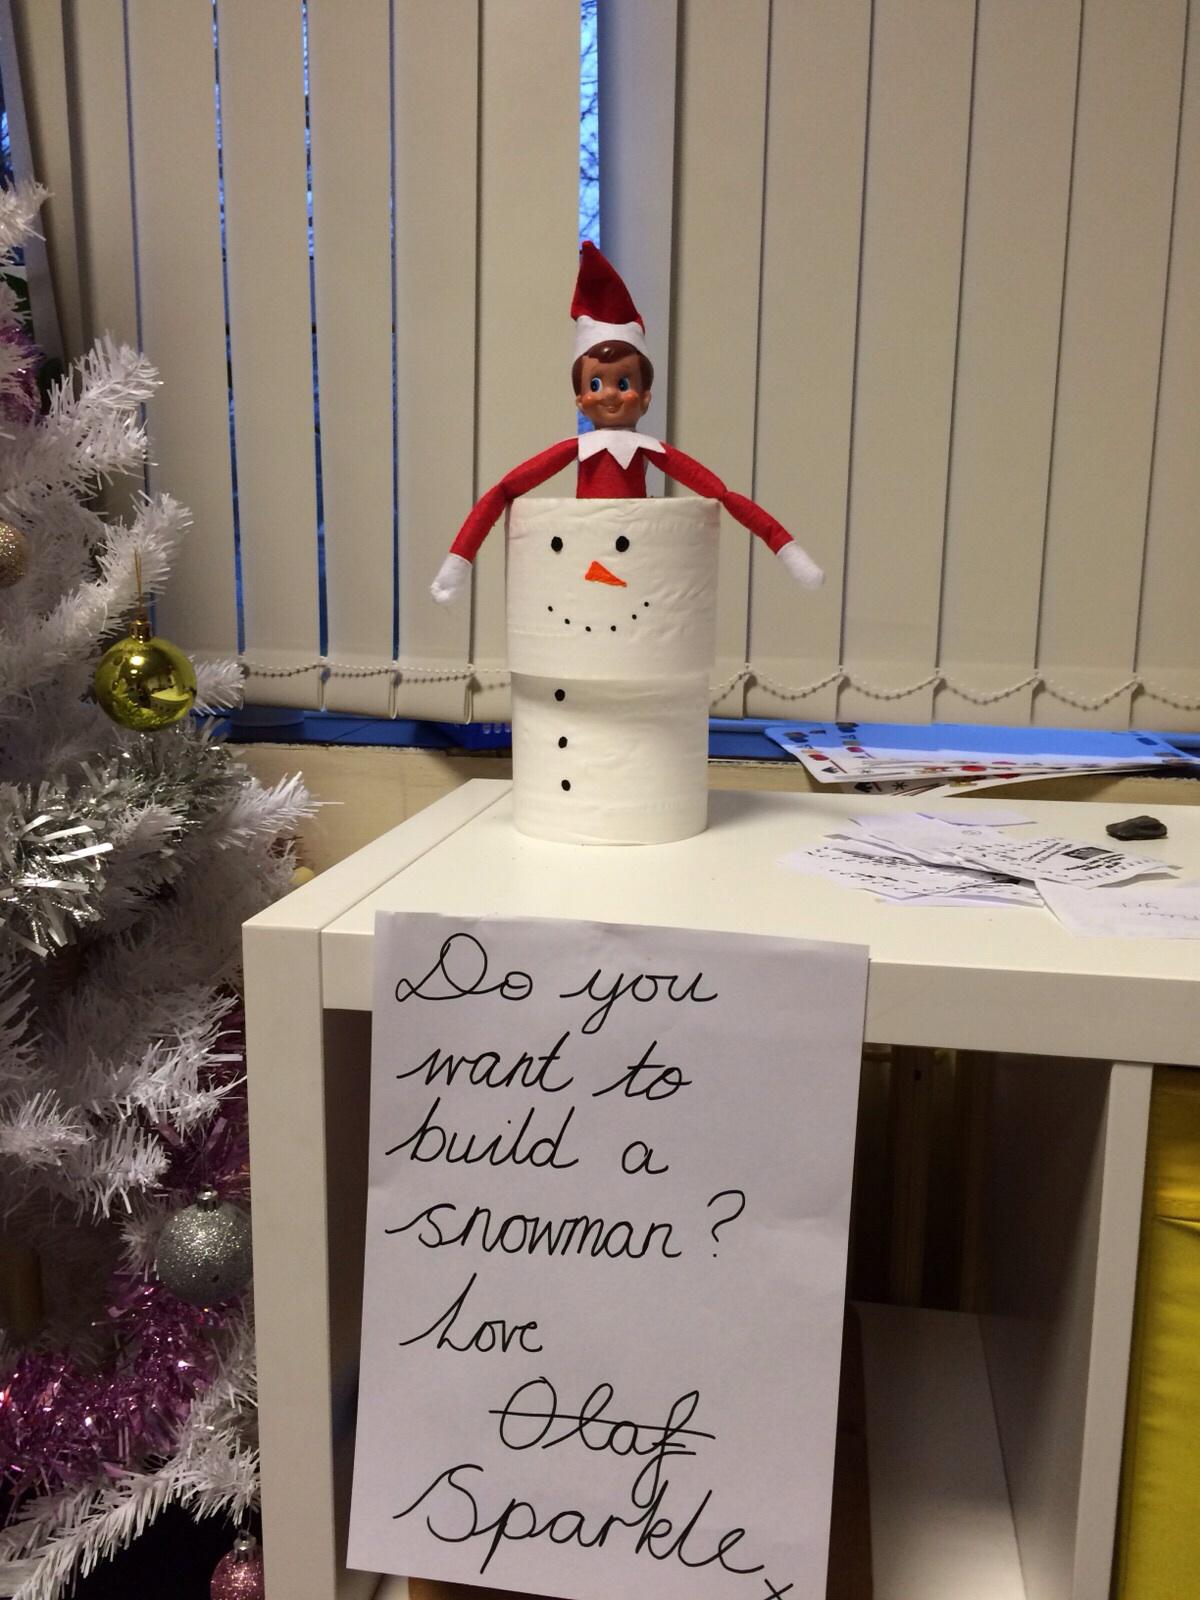 Do you
want to
build a
snowman?
Love
Olaf
Sparkle
x